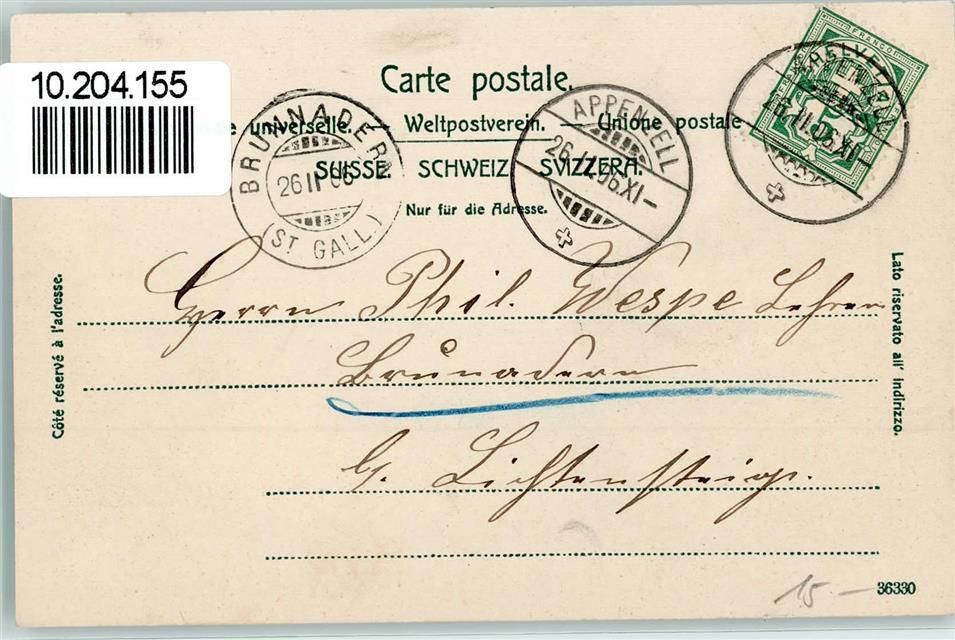 10.204.155
Carte postale.
universelle. — Weltpostverein. — Unione postale
SUISSE. SCHWEIZ. SVIZZERA.
Nur für die Adresse.
BRUNNADERN
26 II 06
(ST GALL.)
APPENZELL
26.II.06.XI-
FRANCO
HELVETIA
APPENZELL
26.II.06.XI-
Côté réservé à l'adresse.
Lato riservato all' indirizzo.
Herrn Phil. Wespe Lehrer
Brunadern
b. Lichtensteig.
15.—
36330